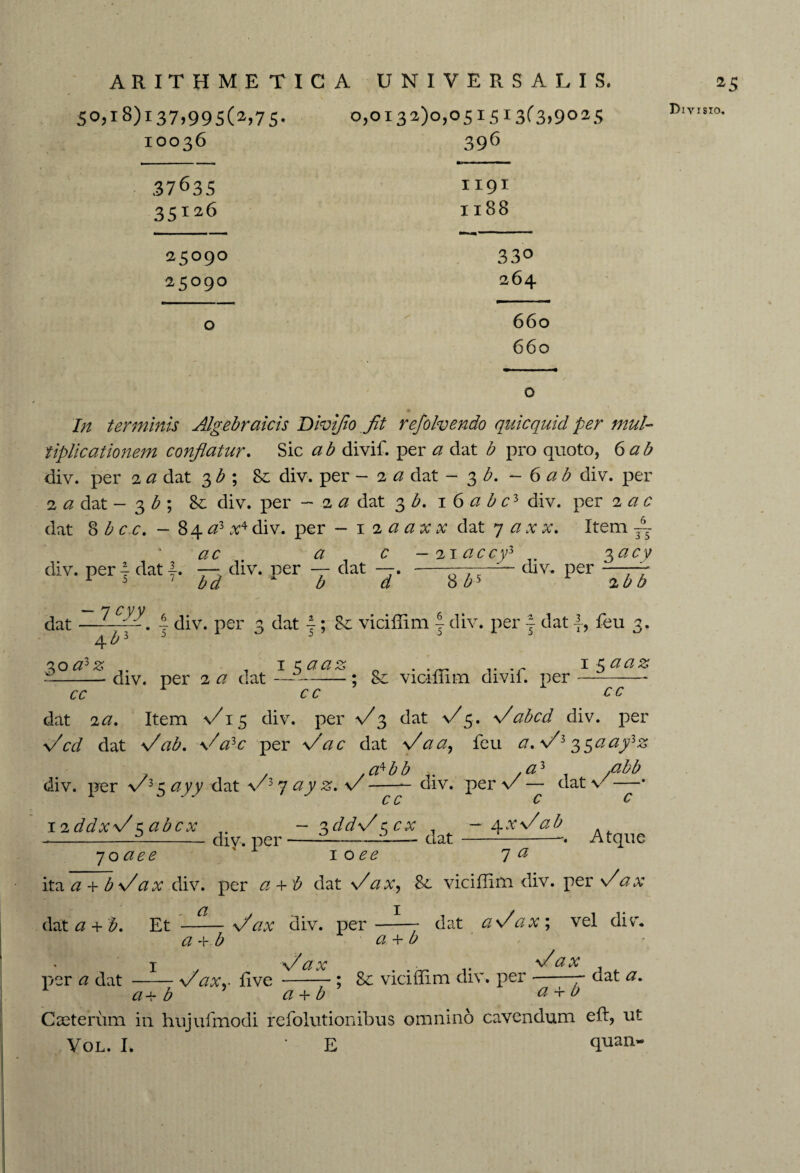 ARITHMETICA UNIVERSALIS. 25
Divisio.
50,18)137,995(2,75. 0,0132)0,051513(3,9025
10036 396
37635 1191
35126 1188
25090 330
25090 264
0 660
660
0
In terminis Algebraicis Divisio fit resolvendo quicquid per mul-
tiplicationem conflatur. Sic ab divis. per a dat b pro quoto, 6ab
div. per 2a dat 3b; & div. per − 2a dat − 3b. − 6ab div. per
2a dat − 3b; & div. per − 2a dat 3b. 16abc³ div. per 2ac
dat 8bcc. − 84a³x⁴ div. per − 12aaxx dat 7axx. Item 6/35
div. per 2/5 dat 3/7. ac/bd div. per a/b dat c/d. −21accy³/8b⁵ div. per 3acy/2bb
dat −7cyy/4b³. 6/5 div. per 3 dat 2/5; & vicissim 6/5 div. per 2/5 dat 3/1, seu 3.
30a³z/cc div. per 2a dat 15aaz/cc; & vicissim divis. per 15aaz/cc
dat 2a. Item √15 div. per √3 dat √5. √abcd div. per
√cd dat √ab. √a³c per √ac dat √aa, seu a. √³35aay³z
div. per √³5ayy dat √³7ayz. √a⁴bb/cc div. per √a³/c dat √abb/c.
12ddx√5abcx/70aee div. per −3dd√5cx/10ee dat −4x√ab/7a. Atque
ita a + b√ax div. per a + b dat √ax, & vicissim div. per √ax
dat a + b. Et a/a + b √ax div. per 1/a + b dat a√ax; vel div.
per a dat 1/a + b √ax, sive √ax/a + b; & vicissim div. per √ax/a + b dat a.
Cæterùm in hujusmodi resolutionibus omninò cavendum est, ut
VOL. I. E quan-